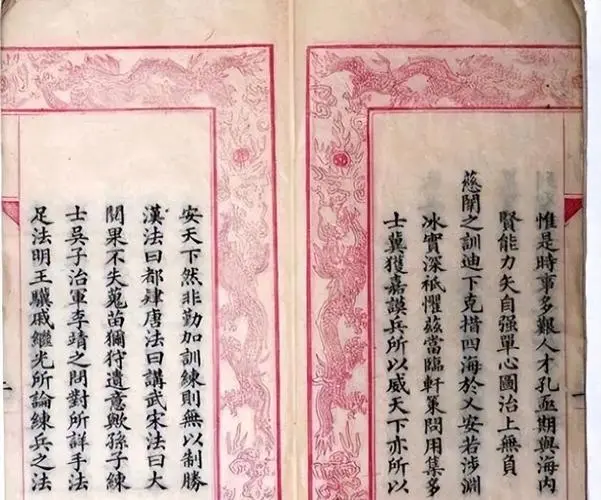 惟是時事多艱人才孔亟期與海內
賢能力矢自强單心圖治上無負
慈闈之訓迪下克措四海於乂安若涉淵
冰實深祗懼茲當臨軒策問用集多
士冀獲嘉謨兵所以威天下亦所以
安天下然非勤加訓練則無以制勝
漢法曰都肄唐法曰講武宋法曰大
閱果不失蒐苗獮狩遺意歟孫子練
士吳子治軍李靖之問對所詳手法
足法明王驥戚繼光所論練兵之法